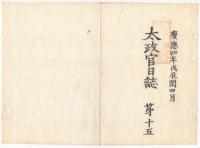 慶應四年戊辰閏四月
太政官日誌
第十五